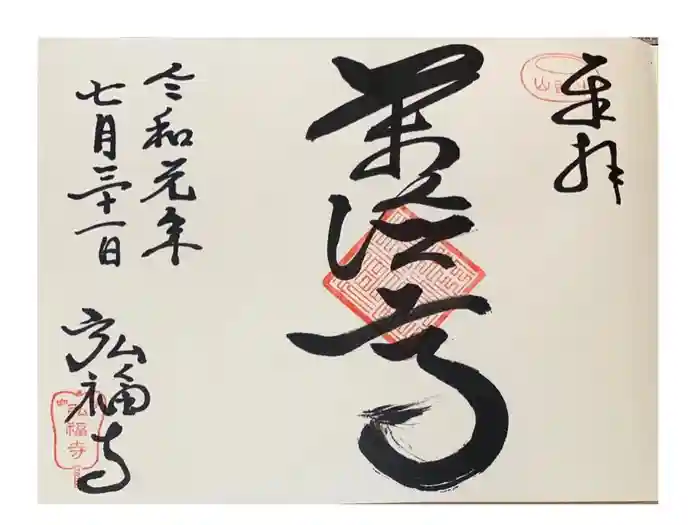 奉拝
萬徳尊
令和元年
七月三十一日
弘福寺
弘福寺